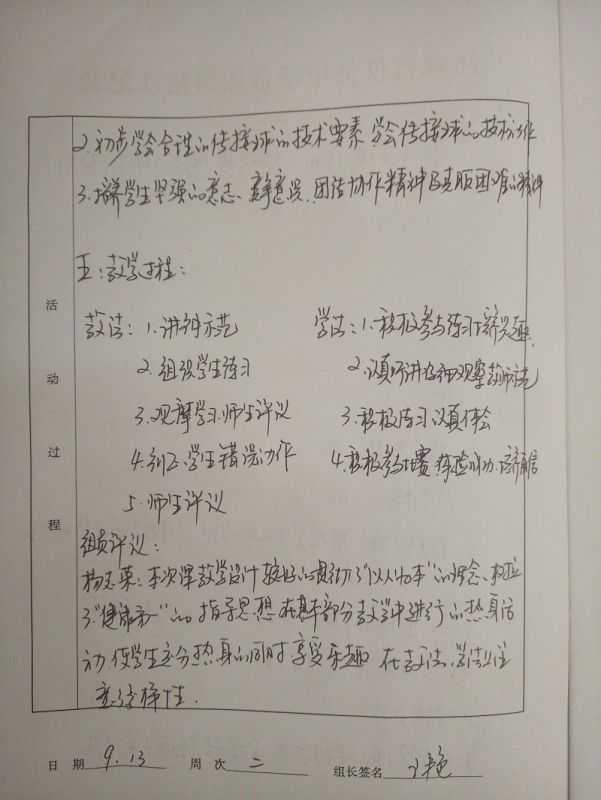 2.初步学会合理的传接球的技术要素,学会传接球的技术动作
3.培养学生坚强的意志、竞争意识、团结协作精神及克服困难的精神
五:教学过程:
教法:1.讲解示范 学法:1.积极参与练习培养兴趣.
2.组织学生练习 2.认真听讲仔细观察教师示范
3.观摩学习.师生评议 3.积极练习认真体会
4.纠正学生错误动作 4.积极参与比赛 体验成功.培养自信
5.师生评议
组员评议:
杨志荣:本次课教学设计较好的贯彻了"以人为本"的理念、树立
了"健康第一"的指导思想.在基本部分教学中进行的热身活
动,使学生充分热身的同时,享受乐趣 在教法、学法上注
意多样性.
活动过程
日 期 9.13 周 次 二 组长签名